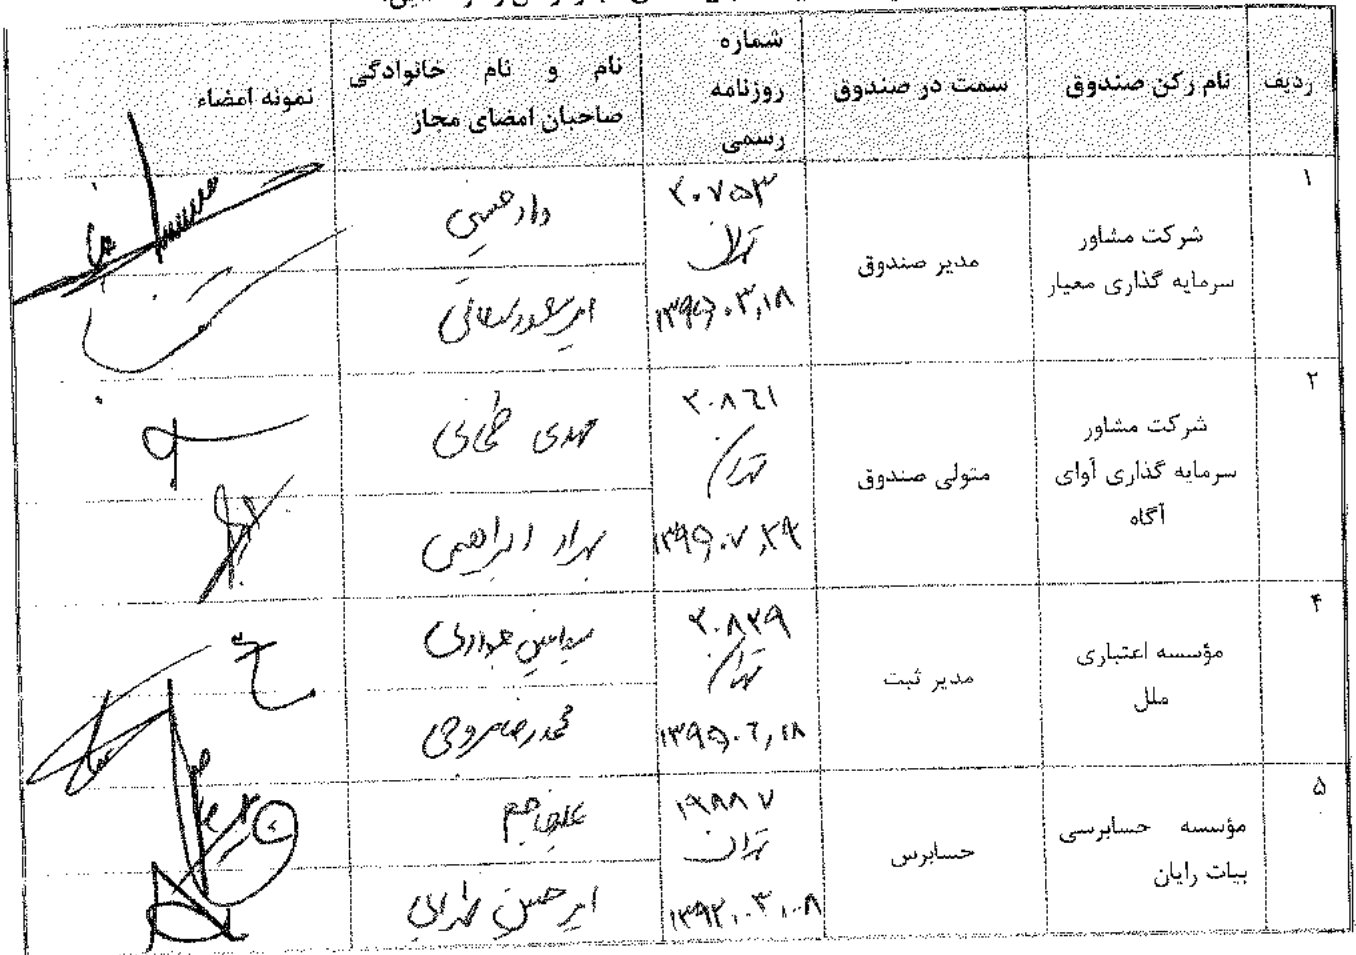 ردیف
نام رکن صندوق
سمت در صندوق
شماره
روزنامه
رسمی
نام و نام خانوادگی
صاحبان امضای مجاز
نمونه امضاء
۱
شرکت مشاور
سرمایه گذاری معیار
مدیر صندوق
۲۰۷۵۳
تهران
۱۳۹۵،۰۳،۱۸
۲
شرکت مشاور
سرمایه گذاری آوای
آگاه
متولی صندوق
۲۰۸۶۱
تهران
۱۳۹۵،۰۷،۲۹
مهدی
بهراد ابراهیمی
۴
مؤسسه اعتباری
ملل
مدیر ثبت
۲۰۸۲۹
تهران
۱۳۹۵،۰۶،۱۸
سیدامین جوادی
محمدرضا مروجی
۵
مؤسسه حسابرسی
بیات رایان
حسابرس
۱۹۸۸۷
تهران
۱۳۹۲،۰۳،۰۸
امیر حسین